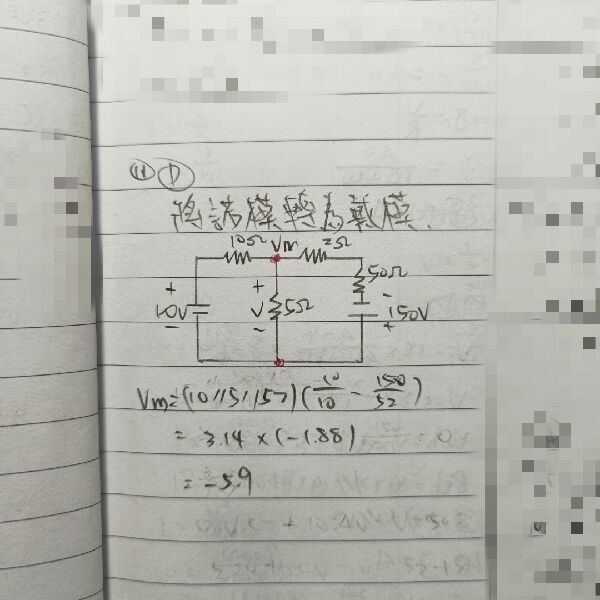 (4) D
將諾模轉為戴模.
10Ω Vm 2Ω
50Ω
+ + -
10V V 5Ω 150V
- - +
Vm=(10//5//52)(10/10 - 150/52)
= 3.14 × (-1.88)
= -5.9